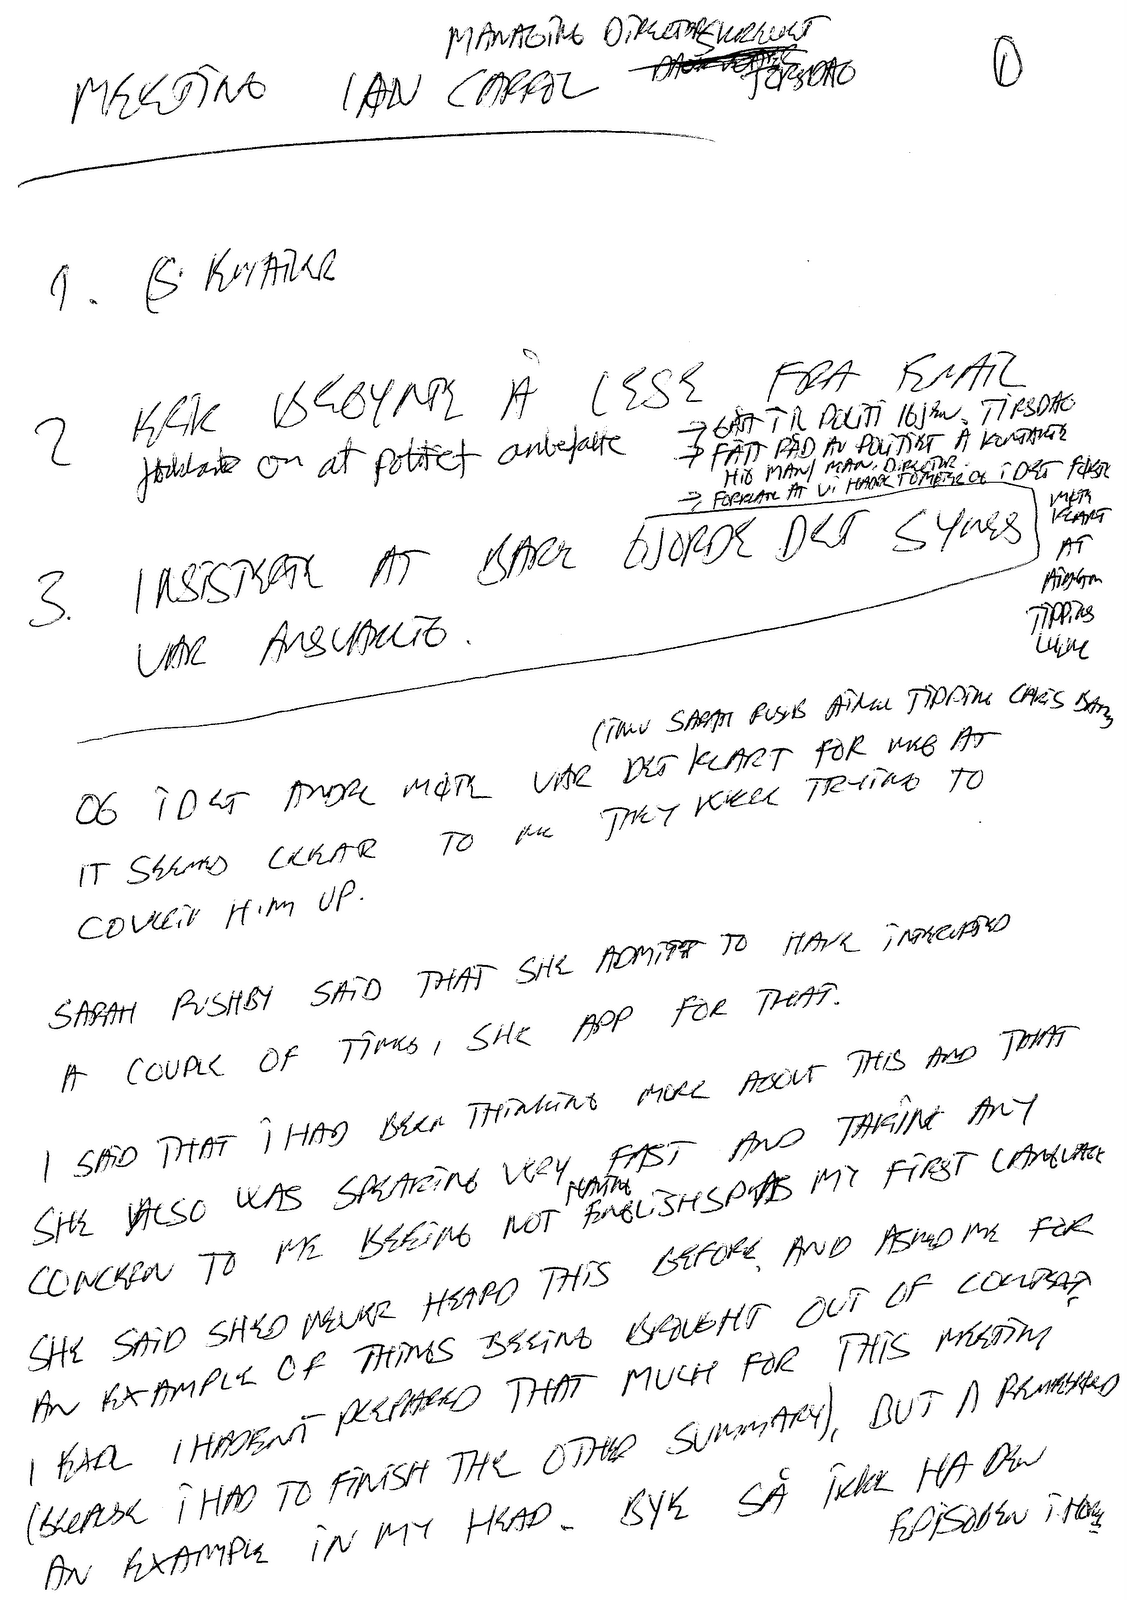 MANAGING DIREKTØR
MEETING IAN CARROL TORSDAG
1
1. 6 EMAILER
2 KEK BEGYNTE Å LESE FRA EMAIL
om at politiet anbefalte
→ GÅTT TIL POLITI 16 JAN. TIRSDAG
→ FÅTT RÅD AV POLITIET Å KONTAKTE
HIS MAN/ MAN. DIRECTOR.
→ FORKLAR AT VI HADDE TO MØTE OG I DET FØRSTE
MØTE
KLART
AT
TIPPING
3. INSISTERTE AT BARE GJORDE DET SYNES
VAR ANSVARLIG.
(INV SARAH TIPPING CHRIS
OG I DET ANDRE MØTE VAR DET KLART FOR MEG AT
IT SEEMED CLEAR TO ME THEY WERE TRYING TO
COVER HIM UP.
SARAH PUSHBY SAID THAT SHE ADMITT TO HAVE INTERUPTED
A COUPLE OF TIMES, SHE APP FOR THAT.
I SAID THAT I HAD BEEN THINKING MORE ABOUT THIS AND THAT
SHE ALSO WAS SPEAKING VERY FAST AND TAKING ANY
CONCERN TO ME BEEING NOT NATIVE ENGLISH AS MY FIRST LANGUAGE
SHE SAID SHED NEVER HEARD THIS BEFORE, AND ASKED ME FOR
AN EXAMPLE OF THINGS BEEING BROUGHT OUT OF CONTEXT
I HADENT PREPARED THAT MUCH FOR THIS MEETING
(BECAUSE I HAD TO FINISH THE OTHER SUMMARY), BUT A REMEMBERED
AN EXAMPLE IN MY HEAD. BYE SÅ IKKE HA DEN
EPISODEN I